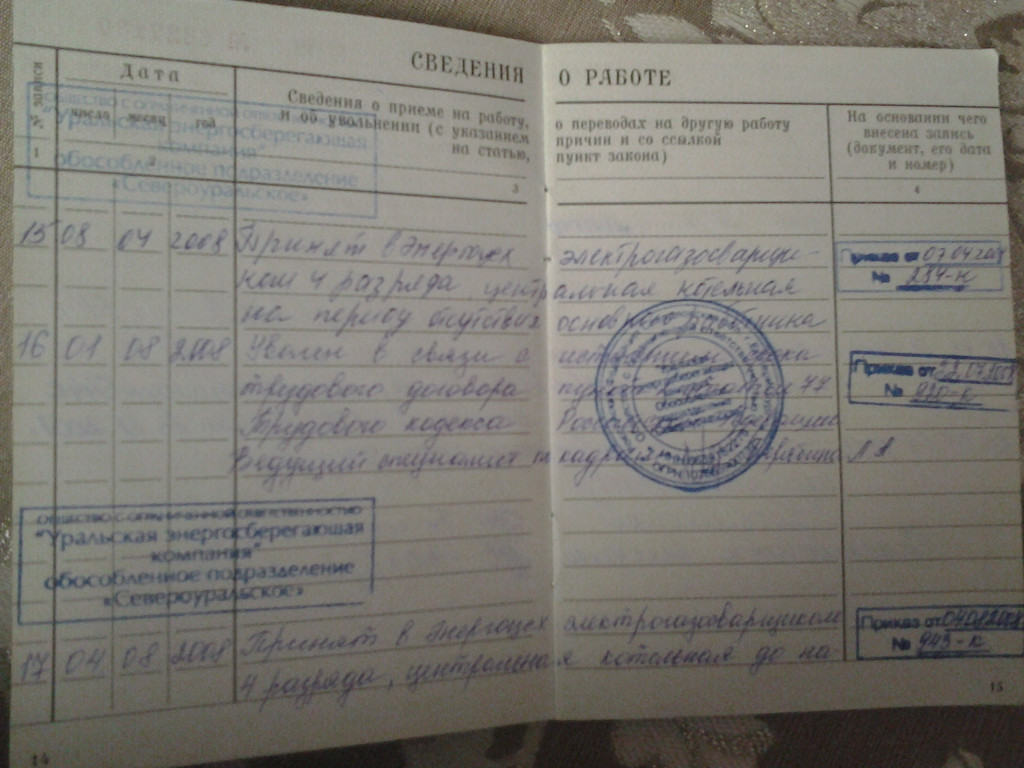 СВЕДЕНИЯ О РАБОТЕ
№ записи
Дата
число месяц год
Сведения о приеме на работу, о переводах на другую работу
и об увольнении (с указанием причин и со ссылкой
на статью, пункт закона)
На основании чего
внесена запись
(документ, его дата
и номер)
1 2 3 4
ОБЩЕСТВО С ОГРАНИЧЕННОЙ ОТВЕТСТВЕННОСТЬЮ
"Уральская энергосберегающая
компания"
обособленное подразделение
«Североуральское»
15 08 04 2008 Принят в Энергоцех электрогазосварщи-
ком 4 разряда, центральная котельная
на период отсутствия основного работника
Приказ от 07.04.2008
№ 284-к
16 01 08 2008 Уволен в связи с истечением срока
трудового договора пункт статьи 77
Трудового кодекса Российской Федерации
Ведущий специалист по кадрам
Приказ от
№
ОБЩЕСТВО С ОГРАНИЧЕННОЙ ОТВЕТСТВЕННОСТЬЮ
"Уральская энергосберегающая
компания"
обособленное подразделение
«Североуральское»
17 04 08 2008 Принят в Энергоцех электрогазосварщиком
4 разряда, центральная котельная до на-
Приказ от 04.08.2008
№ 943-к
14
15